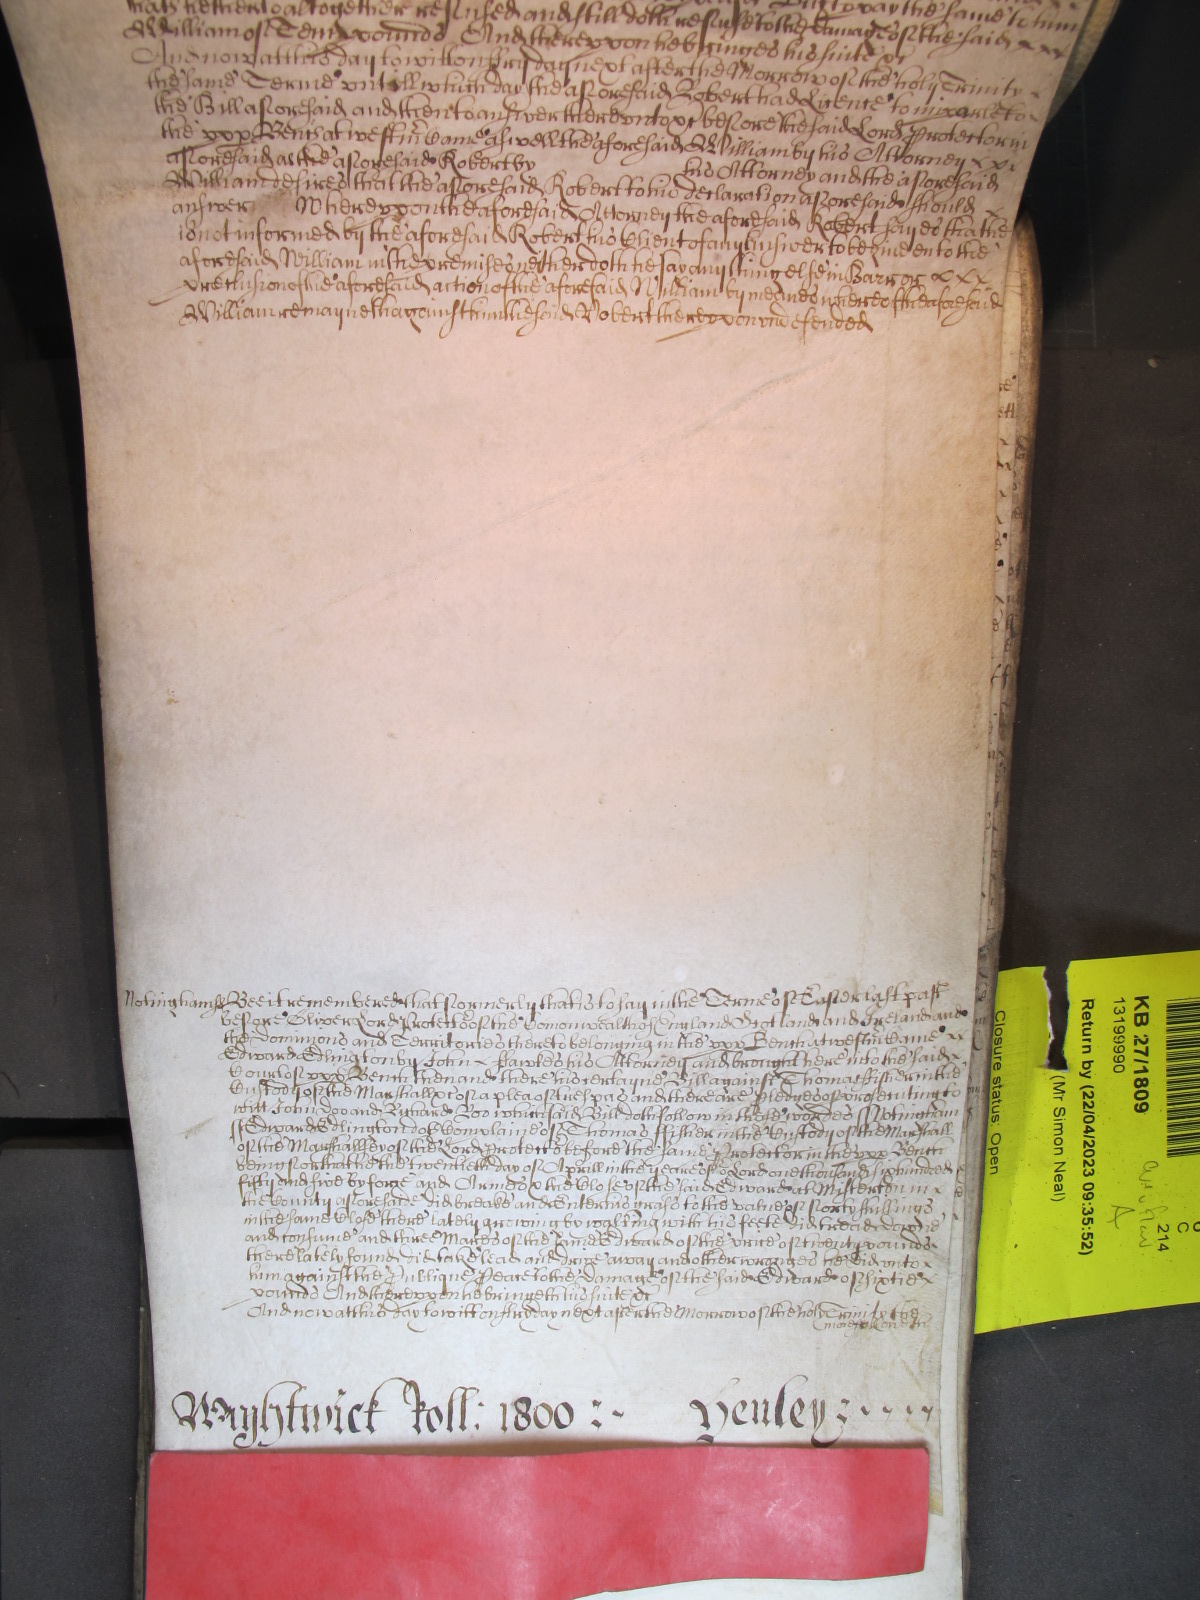 hath hetherto altogether refused and still doth refuse to the damage of the said
William of Tenn pounds And thereuppon he bringes his suite &c
And now att this day to witt on fryday next after the Morrow of the holy Trinity
the same Terme untill which day the aforesaid Robert had Licence to imparle to
the Bill aforesaid and then to answer thereunto &c before the said Lord Protector in
the upp Bench at westm̃ came aswell the aforesaid William by his Attorney
aforesaid as the aforesaid Robert by his Attorney and the aforesaid
William desires that the aforesaid Robert to his declaration aforesaid should
answer Whereuppon the aforesaid Attorney the aforesaid Robert sayeth that he
is not informed by the aforesaid Robert his Client of any answer to be given to the
aforesaid William in the premises neither doth he say any thing else in Barr or
preclusion of the aforesaid action of the aforesaid William by meanes whereof the aforesaid
William remayneth against him the said Robert thereuppon undefended
Notinghamsh Bee it remembered that formerly that is to say in the Terme of Easter last past
before Oliver Lord Protector of the Comonwealth of England Scotland and Ireland and
the Dominions and Territories thereto belonging in the upp Bench at westm̃ came
Edward Edlington by John Hawles his Attorney and brought here into the said
Court of upp Bench then and there his certayne Bill against Thomas ffisher in the
Custody of the Marshall &c of a plea of trespas and there are pledges of prosecuting to
witt John Doo and Richard Roo which said Bill doth follow in these wordes ss Notingham
ss Edward Edlington doth Complaine of Thomas ffisher in the Custody of the Marshall
of the Marshallsey of the Lord Protector before the same Protector in the upp Bench
being for that he the twentieth day of Aprill in the yeare of oʳ Lord one thousand six hundred
fifty and five by force and Armes &c the Close of the said Edward at Misterton in
the County aforesaid did breake and enter his grass to the value of forty shillings
in the same Close there lately growing by walking with his feete did tread downe
and consume and three Mares of the same Edward of the price of twenty pounds
there lately found did take lead and drive away and other wronges he did unto
him against the Publique Peace to the damage of the said Edward of sixtie
pounds And thereuppon he bringeth his suite &c
And now att this day to witt on fryday next after the Morrow of the holy Trinity the
Wightwick Roll: 1800 Henley
Closure status Open
(Mr Simon Neal)
Return by (22/04/2023 09:35:52)
13199990
KB 27/1809
214
C
A